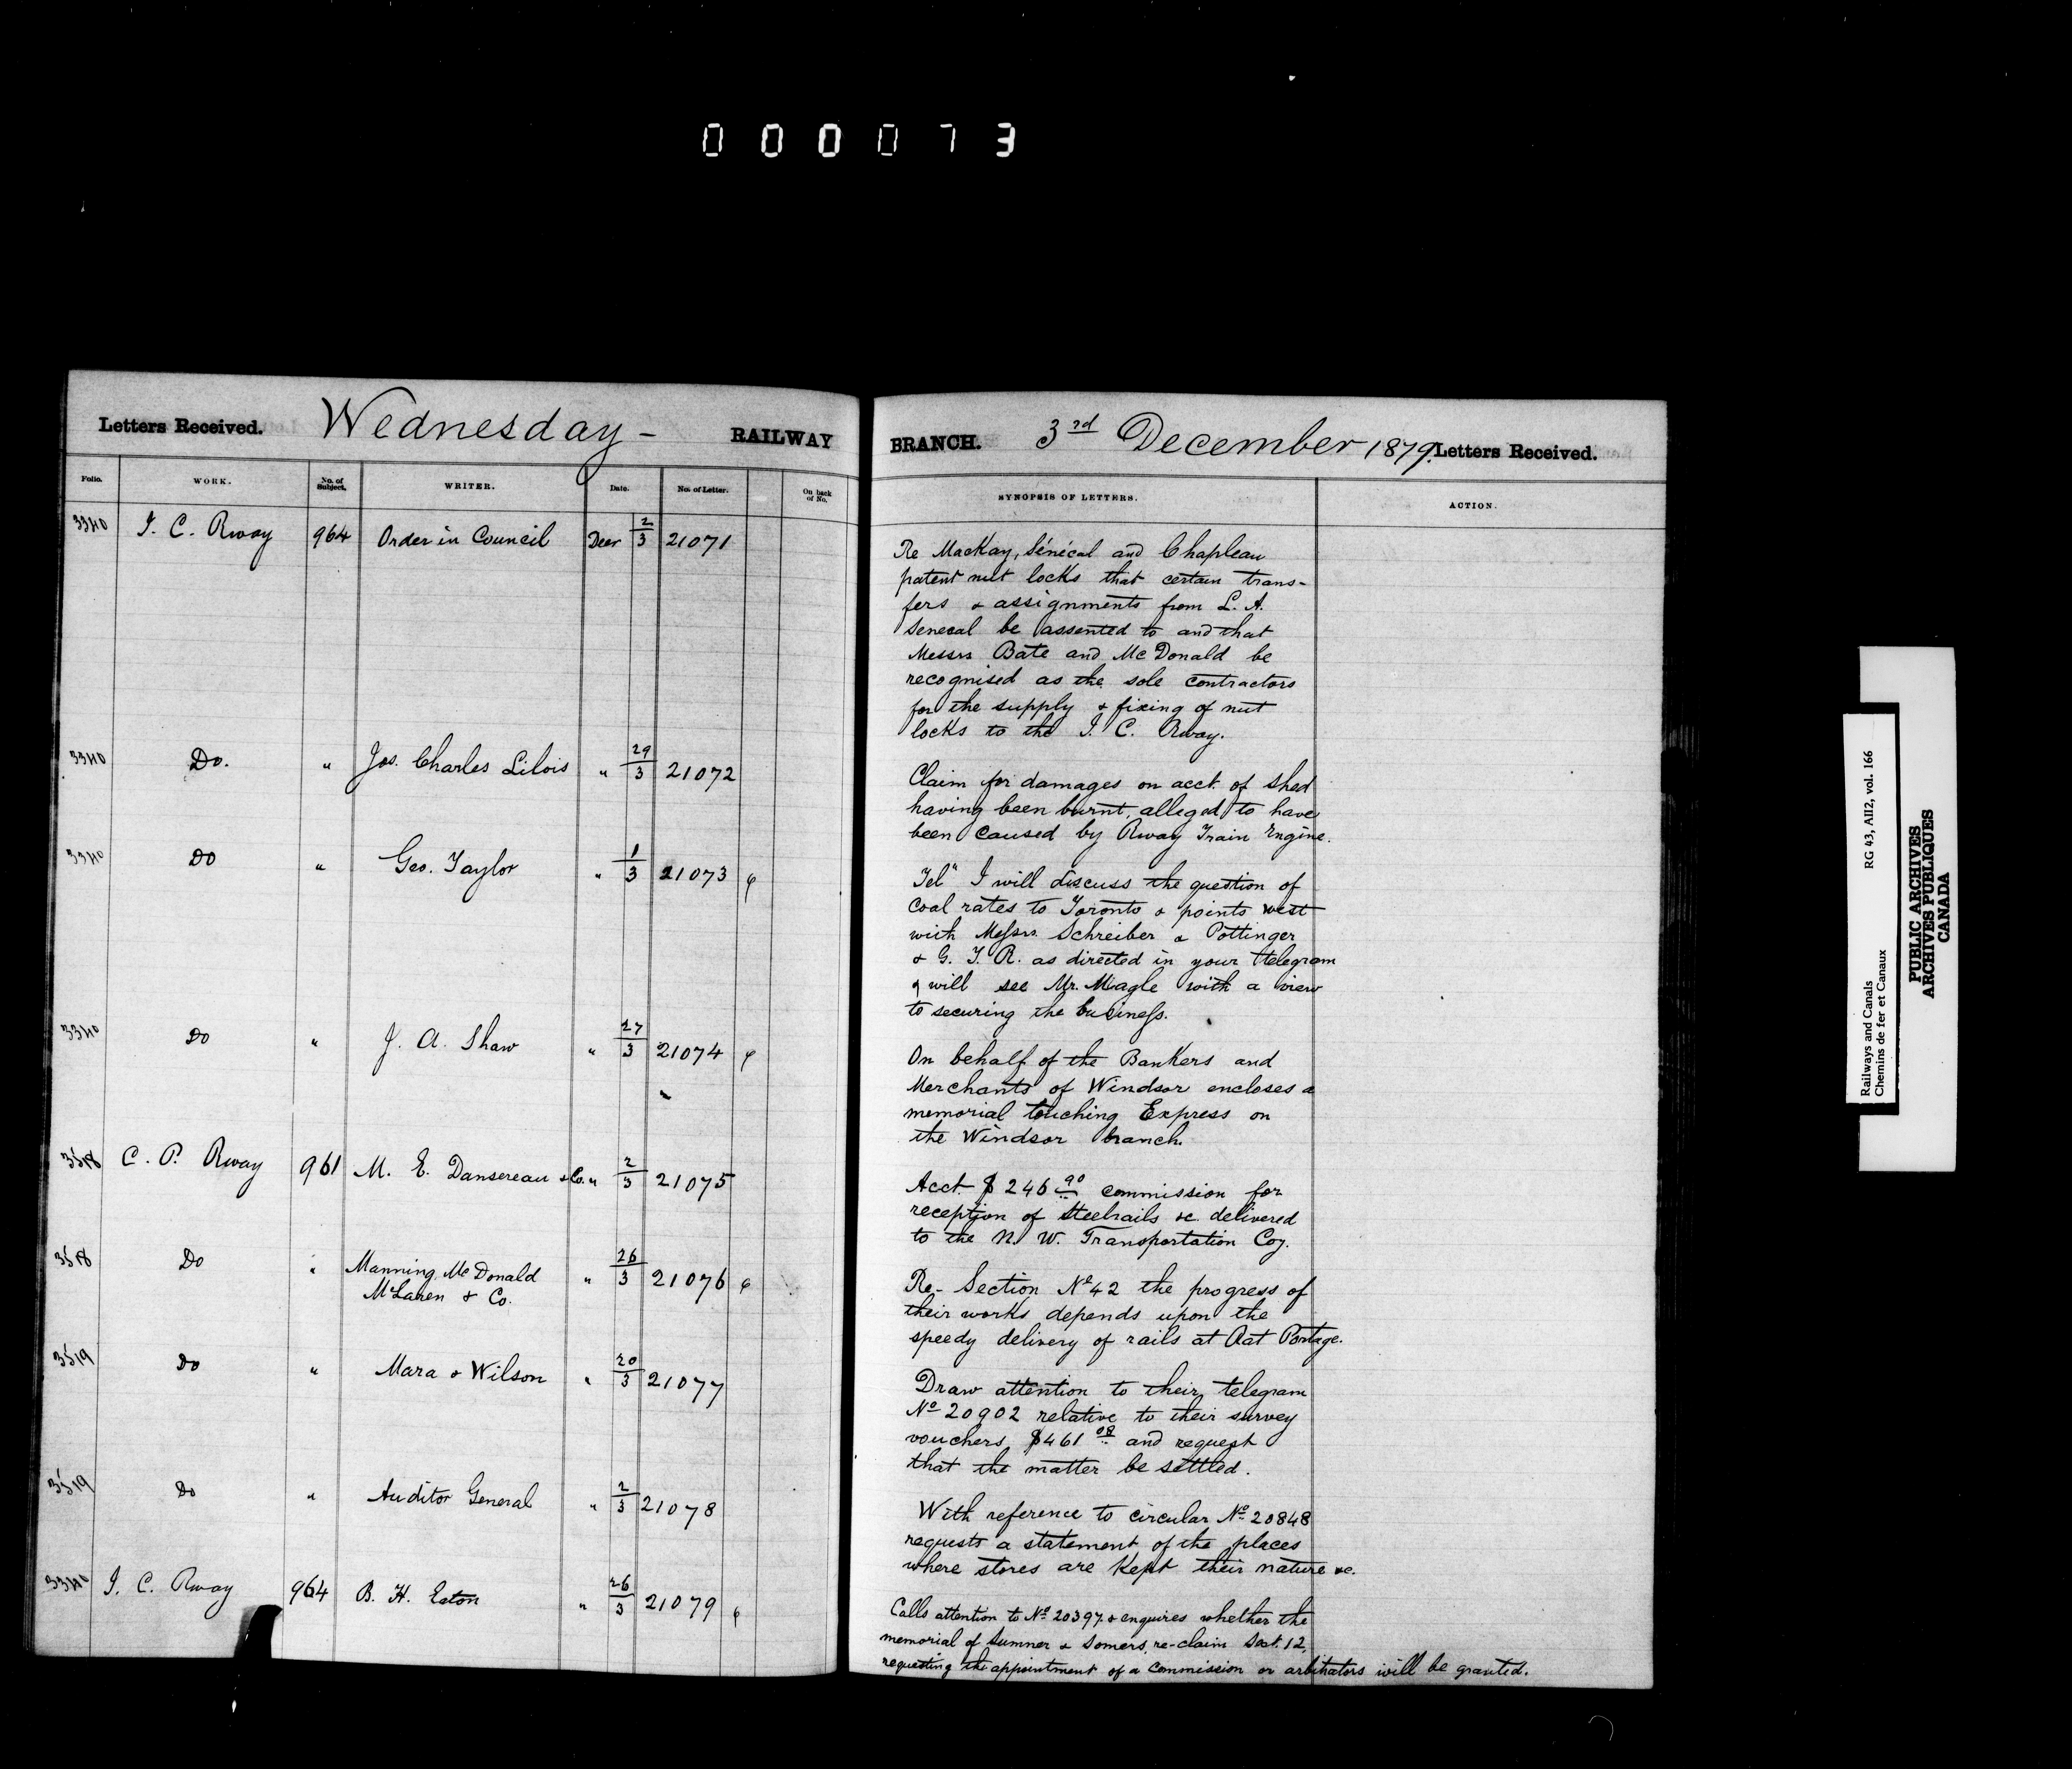 000073
Letters Received. Wednesday - RAILWAY
Folio. WORK. No. of Subject. WRITER. Date. No. of Letter. On back of No.
3340 I. C. Rway 964 Order in Council Decr 2/3 21071
3340 Do. " Jos. Charles Lilois " 29/3 21072
3340 Do " Geo. Taylor " 1/3 21073
3340 Do " J. A. Shaw " 27/3 21074
3518 C. P. Rway 961 M. E. Dansereau & Co. " 2/3 21075
3518 Do " Manning, McDonald
McLaren & Co. " 26/3 21076
3519 Do " Mara & Wilson " 20/3 21077
3519 Do " Auditor General " 2/3 21078
3340 I. C. Rway 964 B. H. Eaton " 26/3 21079
BRANCH. 3rd December 1879. Letters Received.
SYNOPSIS OF LETTERS. ACTION.
Re MacKay, Sénécal and Chapleau
patent nut locks that certain trans-
fers & assignments from L. A.
Senecal be assented to and that
Messrs Bate and McDonald be
recognised as the sole contractors
for the supply & fixing of nut
locks to the I. C. Rway.
Claim for damages on acct. of shed
having been burnt, alleged to have
been caused by Rway Train Engine.
Tel" I will discuss the question of
coal rates to Toronto & points west
with Messrs. Schreiber & Pottinger
& G. T. R. as directed in your telegram
& will see Mr. Miagle with a view
to securing the business.
On behalf of the Bankers and
Merchants of Windsor encloses a
memorial touching Express on
the Windsor branch.
Acct. $246 90 commission for
reception of Steelrails &c. delivered
to the N. W. Transportation Coy.
Re- Section No 42 the progress of
their works depends upon the
speedy delivery of rails at Rat Portage.
Draw attention to their telegram
No 20902 relative to their survey
vouchers $461 08 and request
that the matter be settled.
With reference to circular No 20848
requests a statement of the places
where stores are kept their nature &c.
Calls attention to No 20397 & enquires whether the
memorial of Sumner & Somers, re-claim Sect. 12,
requesting the appointment of a commission or arbitrators will be granted.
Railways and Canals RG 43, AII2, vol. 166
Chemins de fer et Canaux
PUBLIC ARCHIVES
ARCHIVES PUBLIQUES
CANADA